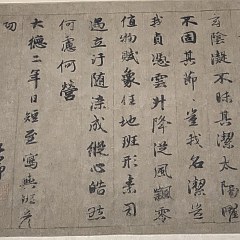 玄陰凝不昧其潔太陽曜
不固其節豈我名潔豈
我貞憑雲升降從風飄零
植物賦象任地班形素因
遇立汙随染成縱心皓然
何慮何營
大德二年日短至寫與